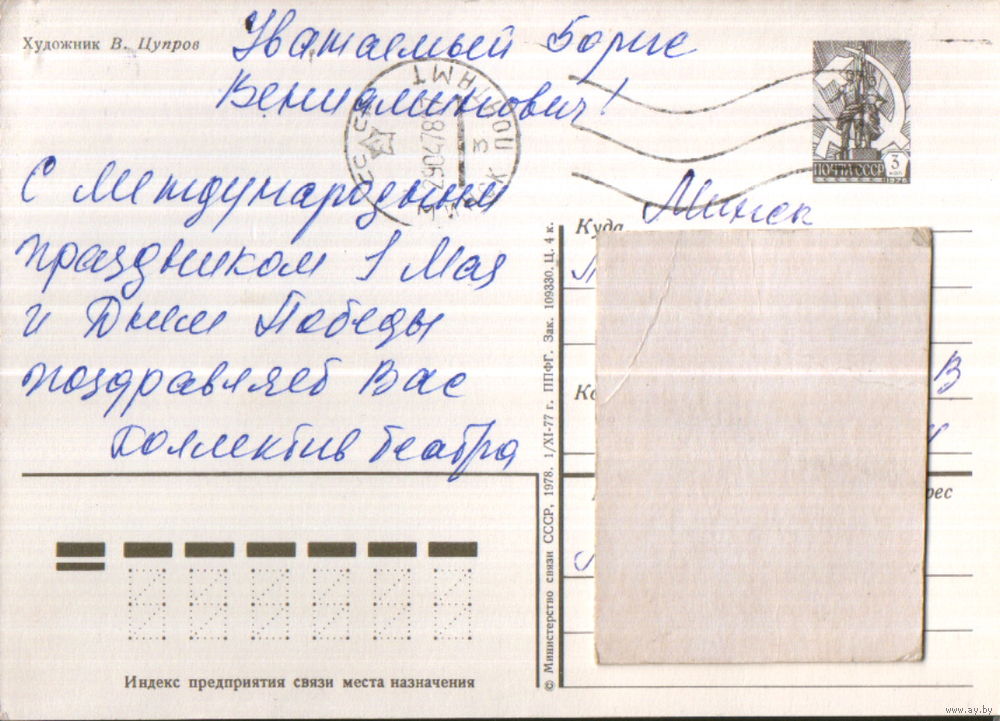 Художник В. Цупров
Уважаемый Борис
Вениаминович!
С Международным
праздником 1 Мая
и Днем Победы
поздравляет Вас
Коллектив театра
ПОЧТА СССР
3
КОП
1976
ПОЧТАМТ
290478
Куда
Минск
В
рес
Индекс предприятия связи места назначения
© Министерство связи СССР, 1978. 1/XI-77 г. ППФГ. Зак. 109330. Ц. 4 к.
www.ay.by